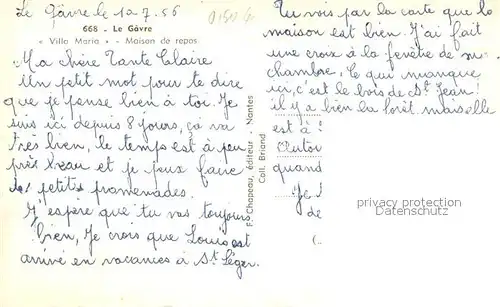 Le Gâvre le 12.7.56
668 - Le Gâvre
« Villa Maria » - Maison de repos
Ma chère Tante Claire
Un petit mot pour te dire
que je pense bien à toi. Je
suis ici depuis 8 jours, ça va
très bien, le temps est à peu
près beau et je peux faire
de petites promenades.
J'espère que tu vas toujours
bien, Je crois que Louis est
arrivé en vacances à St Léger.
F. Chapeau, éditeur - Nantes
Coll. Briand
Tu vois par la carte que la
maison est bien. J'ai fait
une croix à la fenêtre de ma
chambre. Ce qui manque
ici, c'est le bois de St Jean!
il y a bien la forêt mais elle
est à
Autou
quand
Je
de
privacy protection
Datenschutz